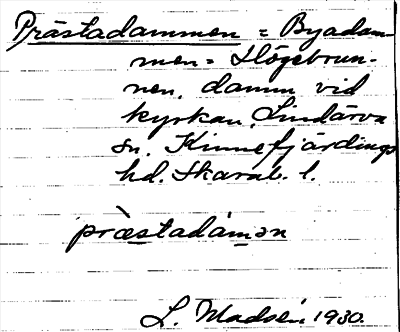 Prästadammen = Byadam-
men = Högebrun-
nen, damm vid
kyrkan, Lindärva
sn. Kinnefjärdings
hd. Skarab. l.
præ̀stadámən
L. Madsén 1930.